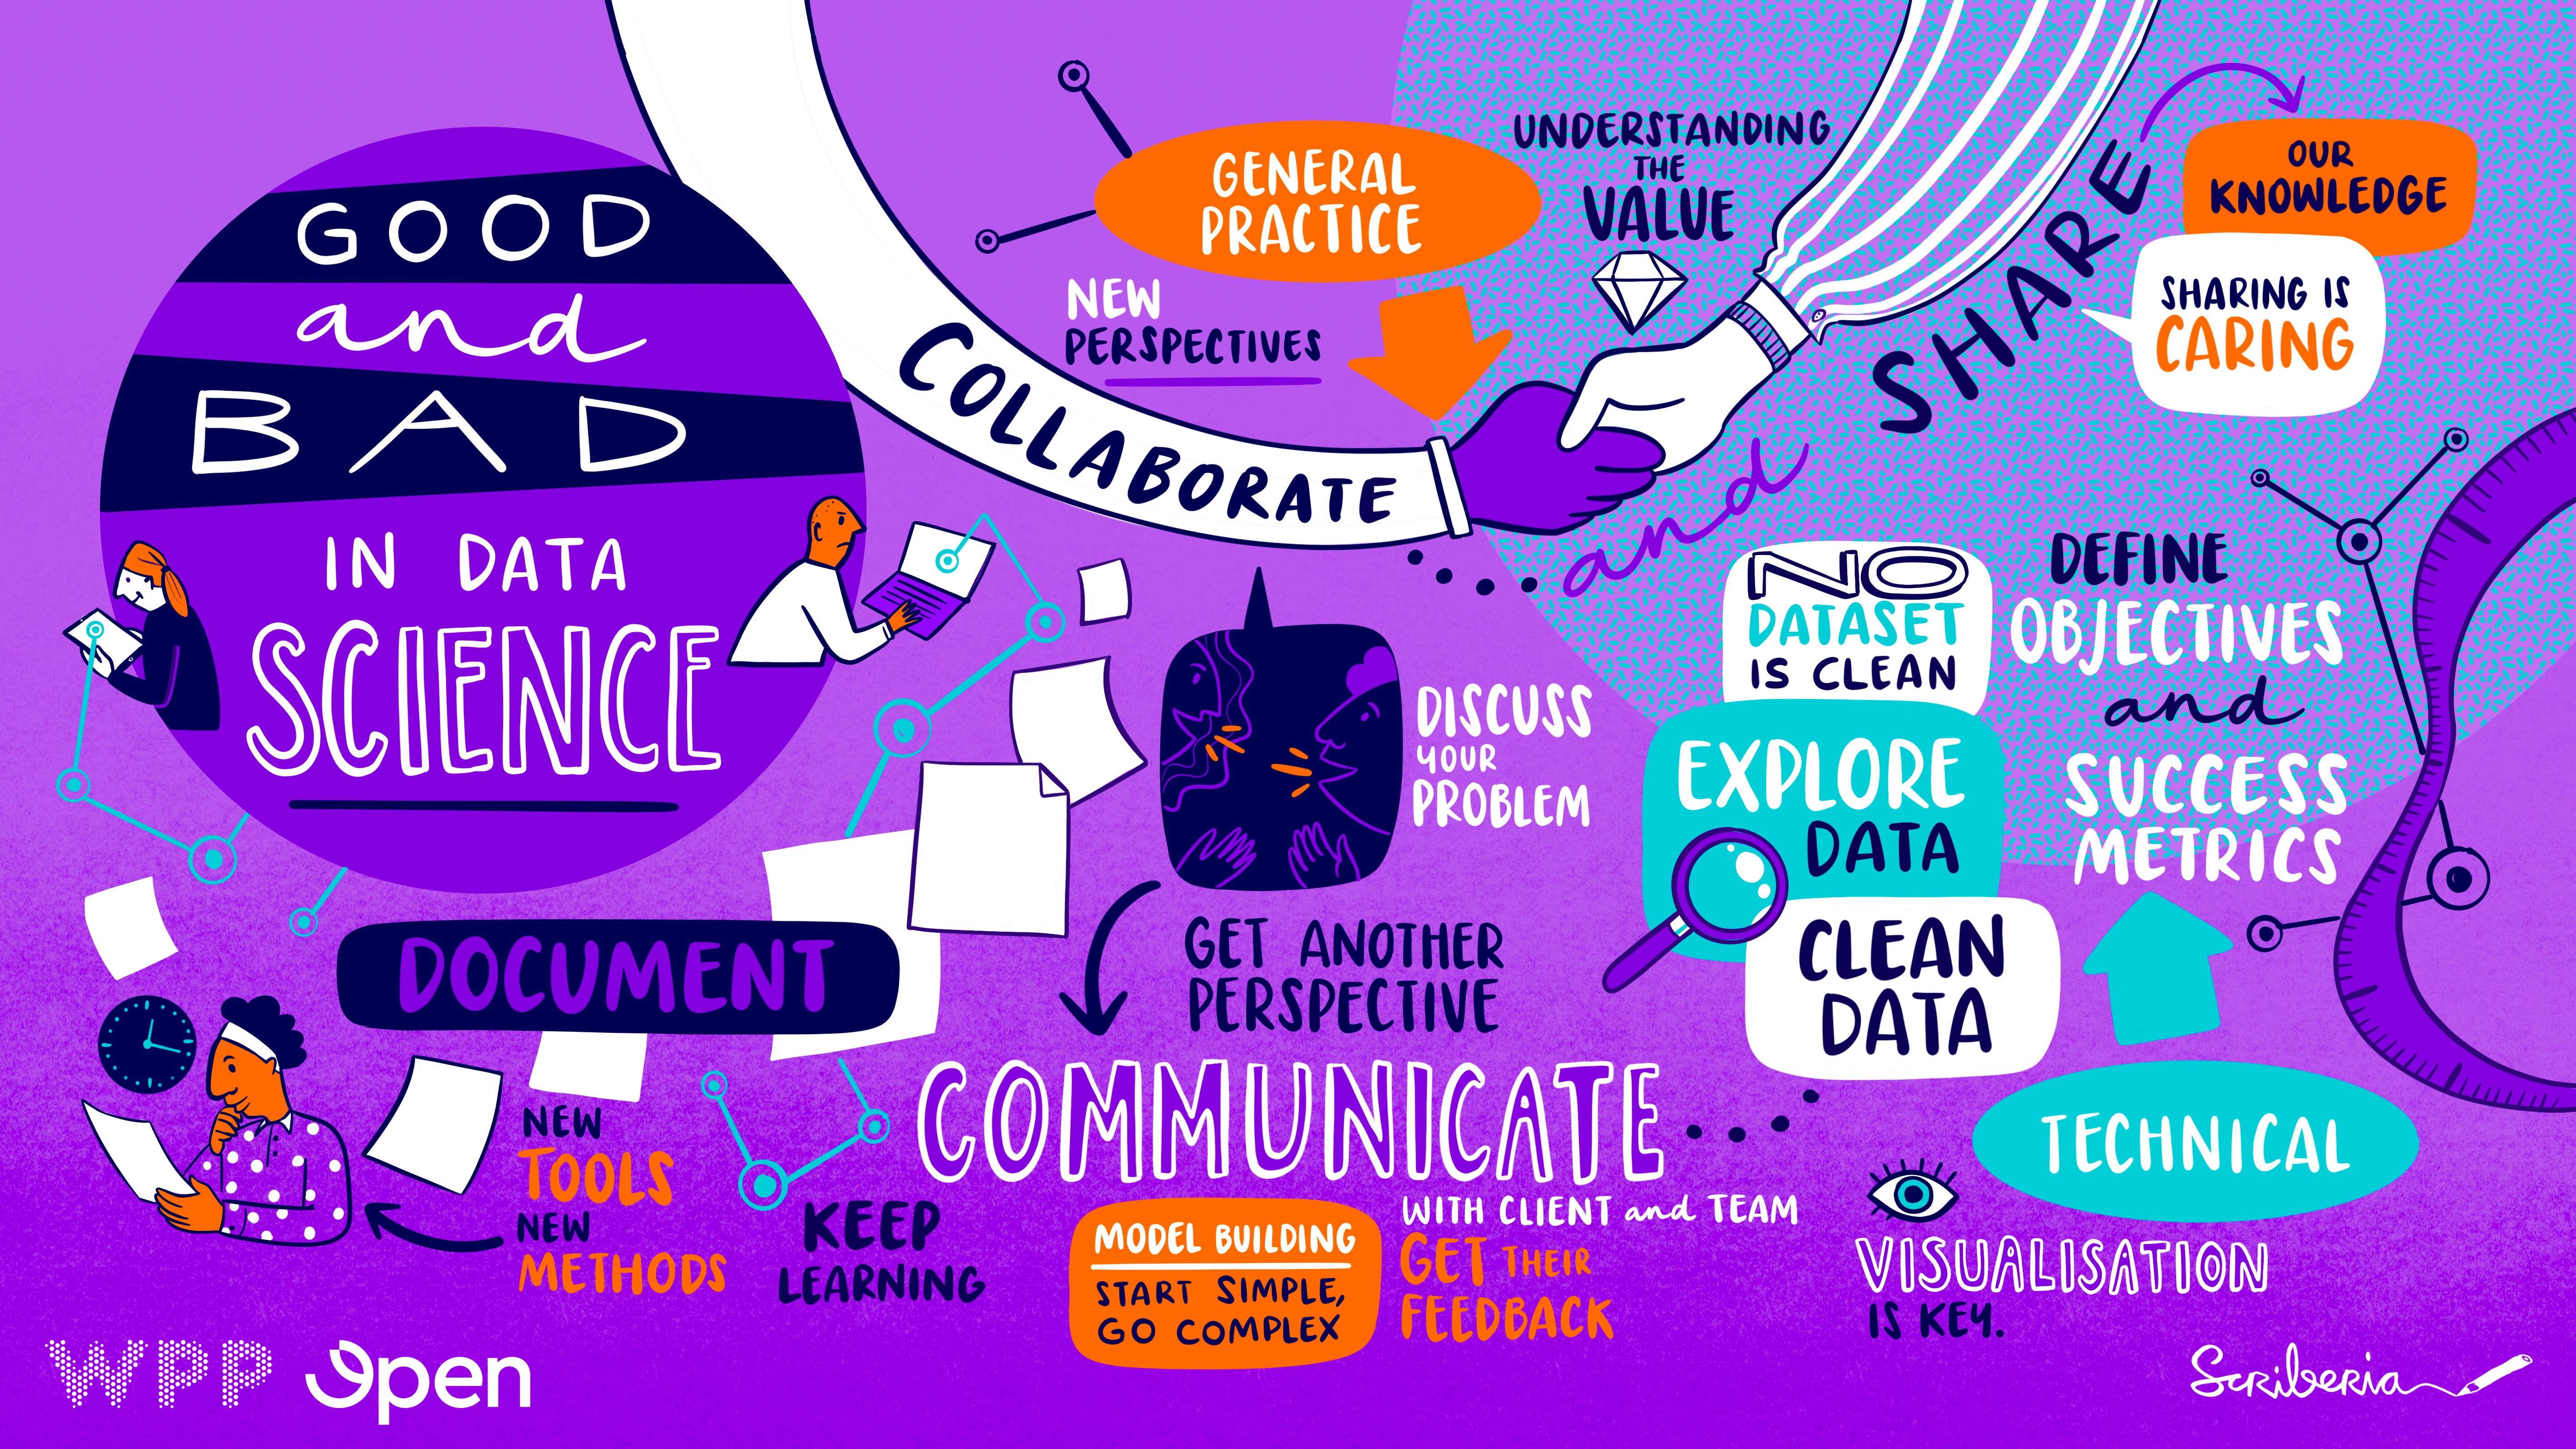 GOOD
and
BAD
IN DATA
SCIENCE
COLLABORATE
and
SHARE
GENERAL
PRACTICE
NEW
PERSPECTIVES
UNDERSTANDING
THE
VALUE
OUR
KNOWLEDGE
SHARING IS
CARING
DISCUSS
YOUR
PROBLEM
GET ANOTHER
PERSPECTIVE
NO
DATASET
IS CLEAN
EXPLORE
DATA
CLEAN
DATA
DEFINE
OBJECTIVES
and
SUCCESS
METRICS
TECHNICAL
VISUALISATION
IS KEY.
DOCUMENT
NEW
TOOLS
NEW
METHODS
KEEP
LEARNING
COMMUNICATE
WITH CLIENT and TEAM
GET THEIR
FEEDBACK
MODEL BUILDING
START SIMPLE,
GO COMPLEX
WPP Open
Scriberia